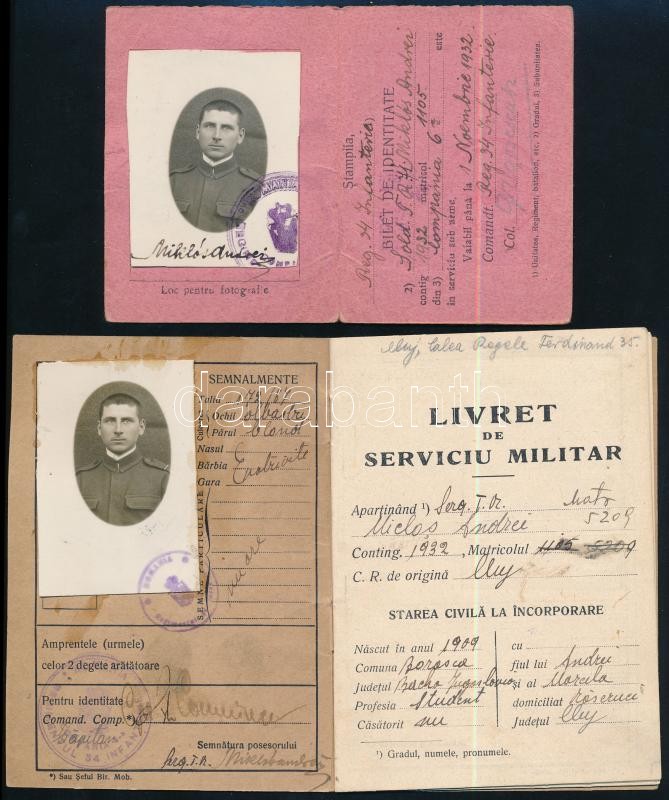 Miklós Andrei
Loc pentru fotografie
Ștampila,
Reg. 34 Infanterie ¹)
BILET DE IDENTITATE
2) Sold. T. R. Miklós Andrei
contig 1932 matricol 1105
din 3) Compania 6ª este
în serviciu sub arme,
Valabil până la 1 Noembrie 1932
Comandt. Reg. 34 Infanterie
Col.
1) Unitatea, Regiment, batalion, etc. 2) Gradul, 3) Subunitatea.
darabanth
SEMNALMENTE
Talia 1,72
Ochii albastri
Părul blond
Nasul
Bărbia
Gura
SEMNE PARTICULARE
ROMANIA
Amprentele (urmele)
celor 2 degete arătătoare
Pentru identitate
Comand. Comp.*)
Căpitan
Semnătura posesorului
Serg. T. R.
*) Sau Șeful Bir. Mob.
Cluj, Calea Regele Ferdinand 35.
LIVRET
DE
SERVICIU MILITAR
Aparținând ¹) Serg. T. R. Matr
Miclós Andrei 5209
Conting. 1932, Matricolul 1105 5209
C. R. de origină Cluj
STAREA CIVILĂ LA ÎNCORPORARE
Născut în anul 1909
Comuna
Județul Jugoslavia
Profesia student
Căsătorit nu
cu
fiul lui Andrei
și al Marcela
domiciliat
Județul Cluj
¹) Gradul, numele, pronumele.